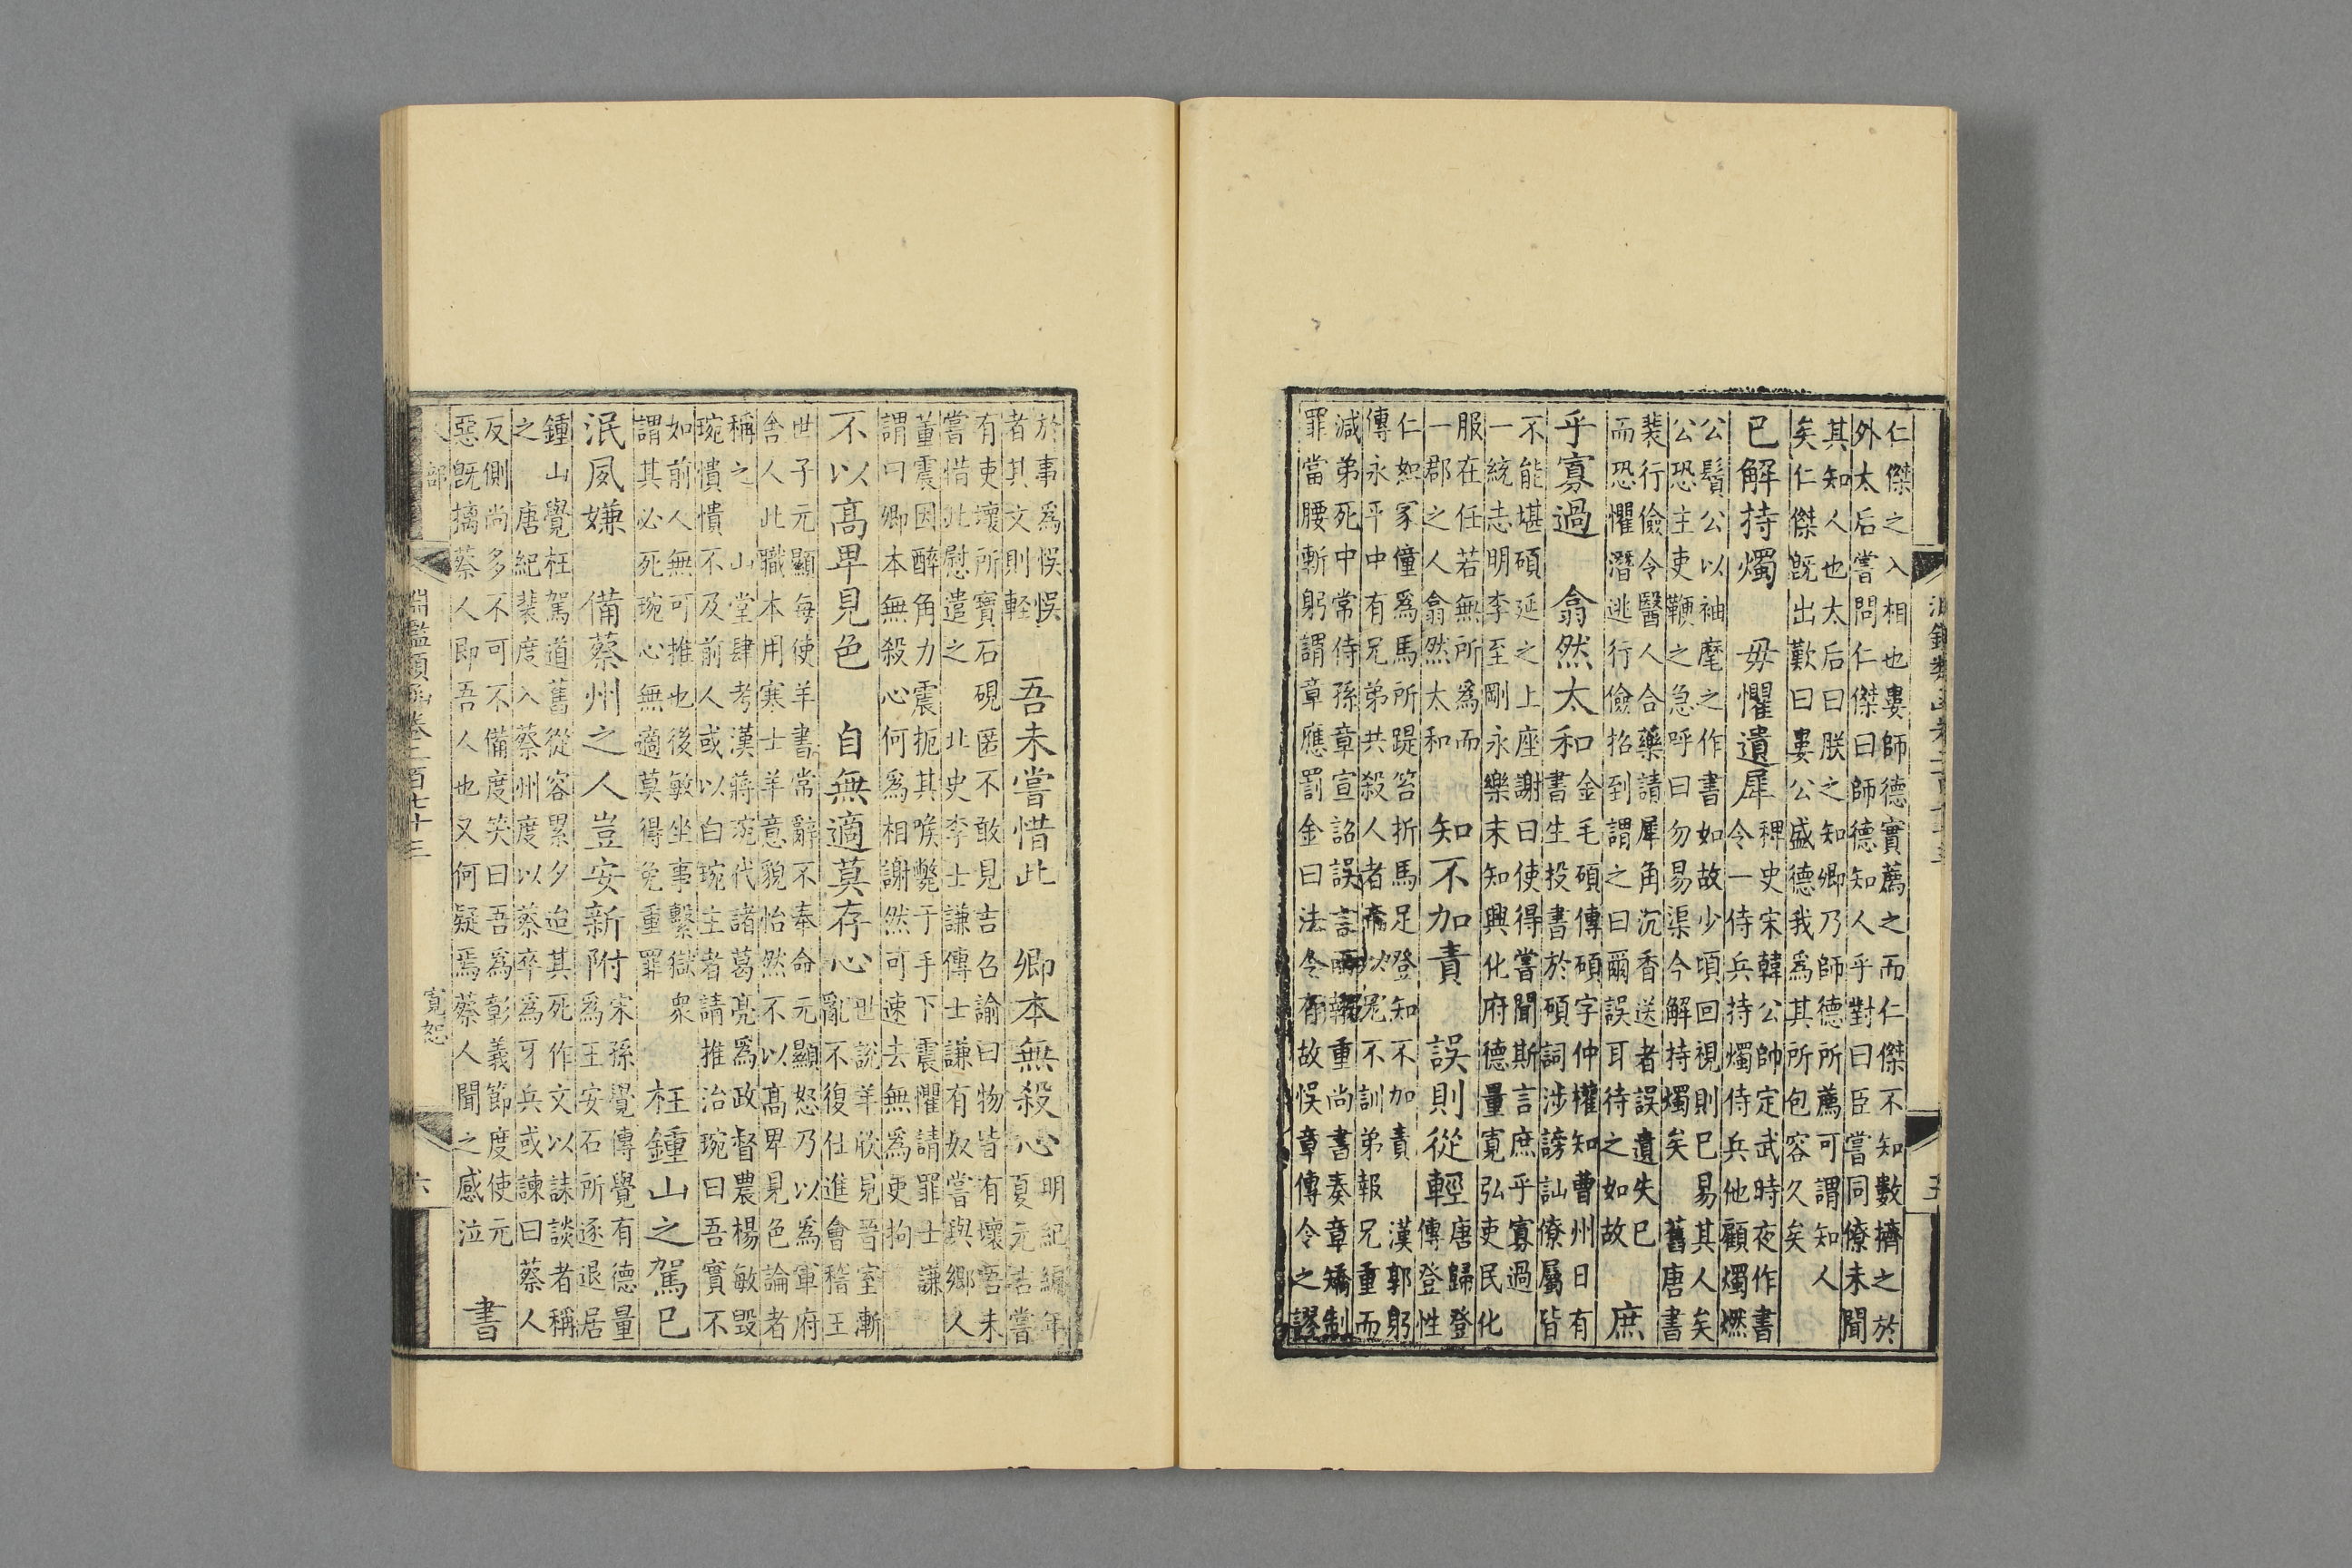 仁傑之入相也婁師德實薦之而仁傑不知數擠之於
外太后嘗問仁傑曰師德知人乎對曰臣嘗同僚未聞
其知人也太后曰朕之知卿乃師德所薦可謂知人
矣仁傑既出歎曰婁公盛德我為其所包容久矣
已解持燭　毋懼遺犀
稗史宋韓公帥定武時夜作書
令一侍兵持燭侍兵他顧燭燃
公鬚公以袖麾之作書如故少頃回視則已易其人矣
公恐主吏鞭之急呼曰勿易渠今解持燭矣　舊唐書
裴行儉令醫人合藥請犀角沉香送者誤遺失已
而恐懼潛逃行儉招到謂之曰爾誤耳待之如故
庶
乎寡過　翕然太和
金毛碩傳碩字仲權知曹州日有
書生投書於碩詞涉謗訕僚屬皆
不能堪碩延之上座謝曰使得嘗聞斯言庶乎寡過
一統志明李至剛永樂末知興化府德量寬弘吏民化
服在任若無所為而
一郡之人翕然太和
知不加責　誤則從輕
唐歸登
傳登性
仁恕家僮為馬所踶笞折馬足登知不加責　漢郭躬
傳永平中有兄弟共殺人者帝以兄不訓弟報兄重而
減弟死中常侍孫章宣詔誤言兩報重尚書奏章矯制
罪當腰斬躬謂章應罰金曰法令有故悞章傳令之謬
於事為悞悞
者其文則輕
吾未嘗惜此　卿本無殺心
明紀編年
夏元吉嘗
有吏壞所寶石硯匿不敢見吉召諭曰物皆有壞吾未
嘗惜此慰遣之　北史李士謙傳士謙有奴嘗與鄉人
董震因醉角力震扼其喉斃于手下震懼請罪士謙
謂曰卿本無殺心何為相謝然可速去無為吏拘
不以高卑見色　自無適莫存心
世說羊欣見晉室漸
亂不復仕進會稽王
世子元顯每使羊書常辭不奉命元顯怒乃以為軍府
舍人此職本用寒士羊意貌怡然不以高卑見色論者
稱之　山堂肆考漢蔣琬代諸葛亮為政督農楊敏毀
琬憒憒不及前人或以白琬主者請推治琬曰吾實不
如前人無可推也後敏坐事繫獄眾
謂其必死琬心無適莫得免重罪
枉鍾山之駕已
泯夙嫌　備蔡州之人豈安新附
宋孫覺傳覺有德量
為王安石所逐退居
鍾山覺枉駕道舊從容累夕迨其死作文以誄談者稱
之　唐紀裴度入蔡州度以蔡卒為牙兵或諫曰蔡人
反側尚多不可不備度笑曰吾為彰義節度使元
惡既擒蔡人即吾人也又何疑焉蔡人聞之感泣
書
淵鑑類函卷二百七十三
寬恕
六